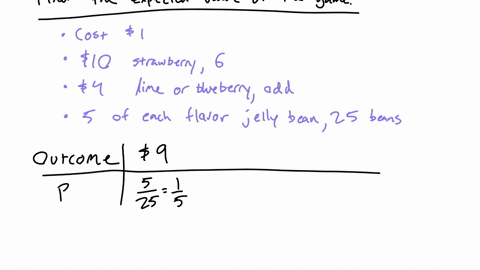 the expected value of the game.
• Cost $1
• $10 strawberry, 6
• $4 lime or blueberry, odd
• 5 of each flavor jelly bean, 25 beans
Outcome $9
P 5/25 = 1/5